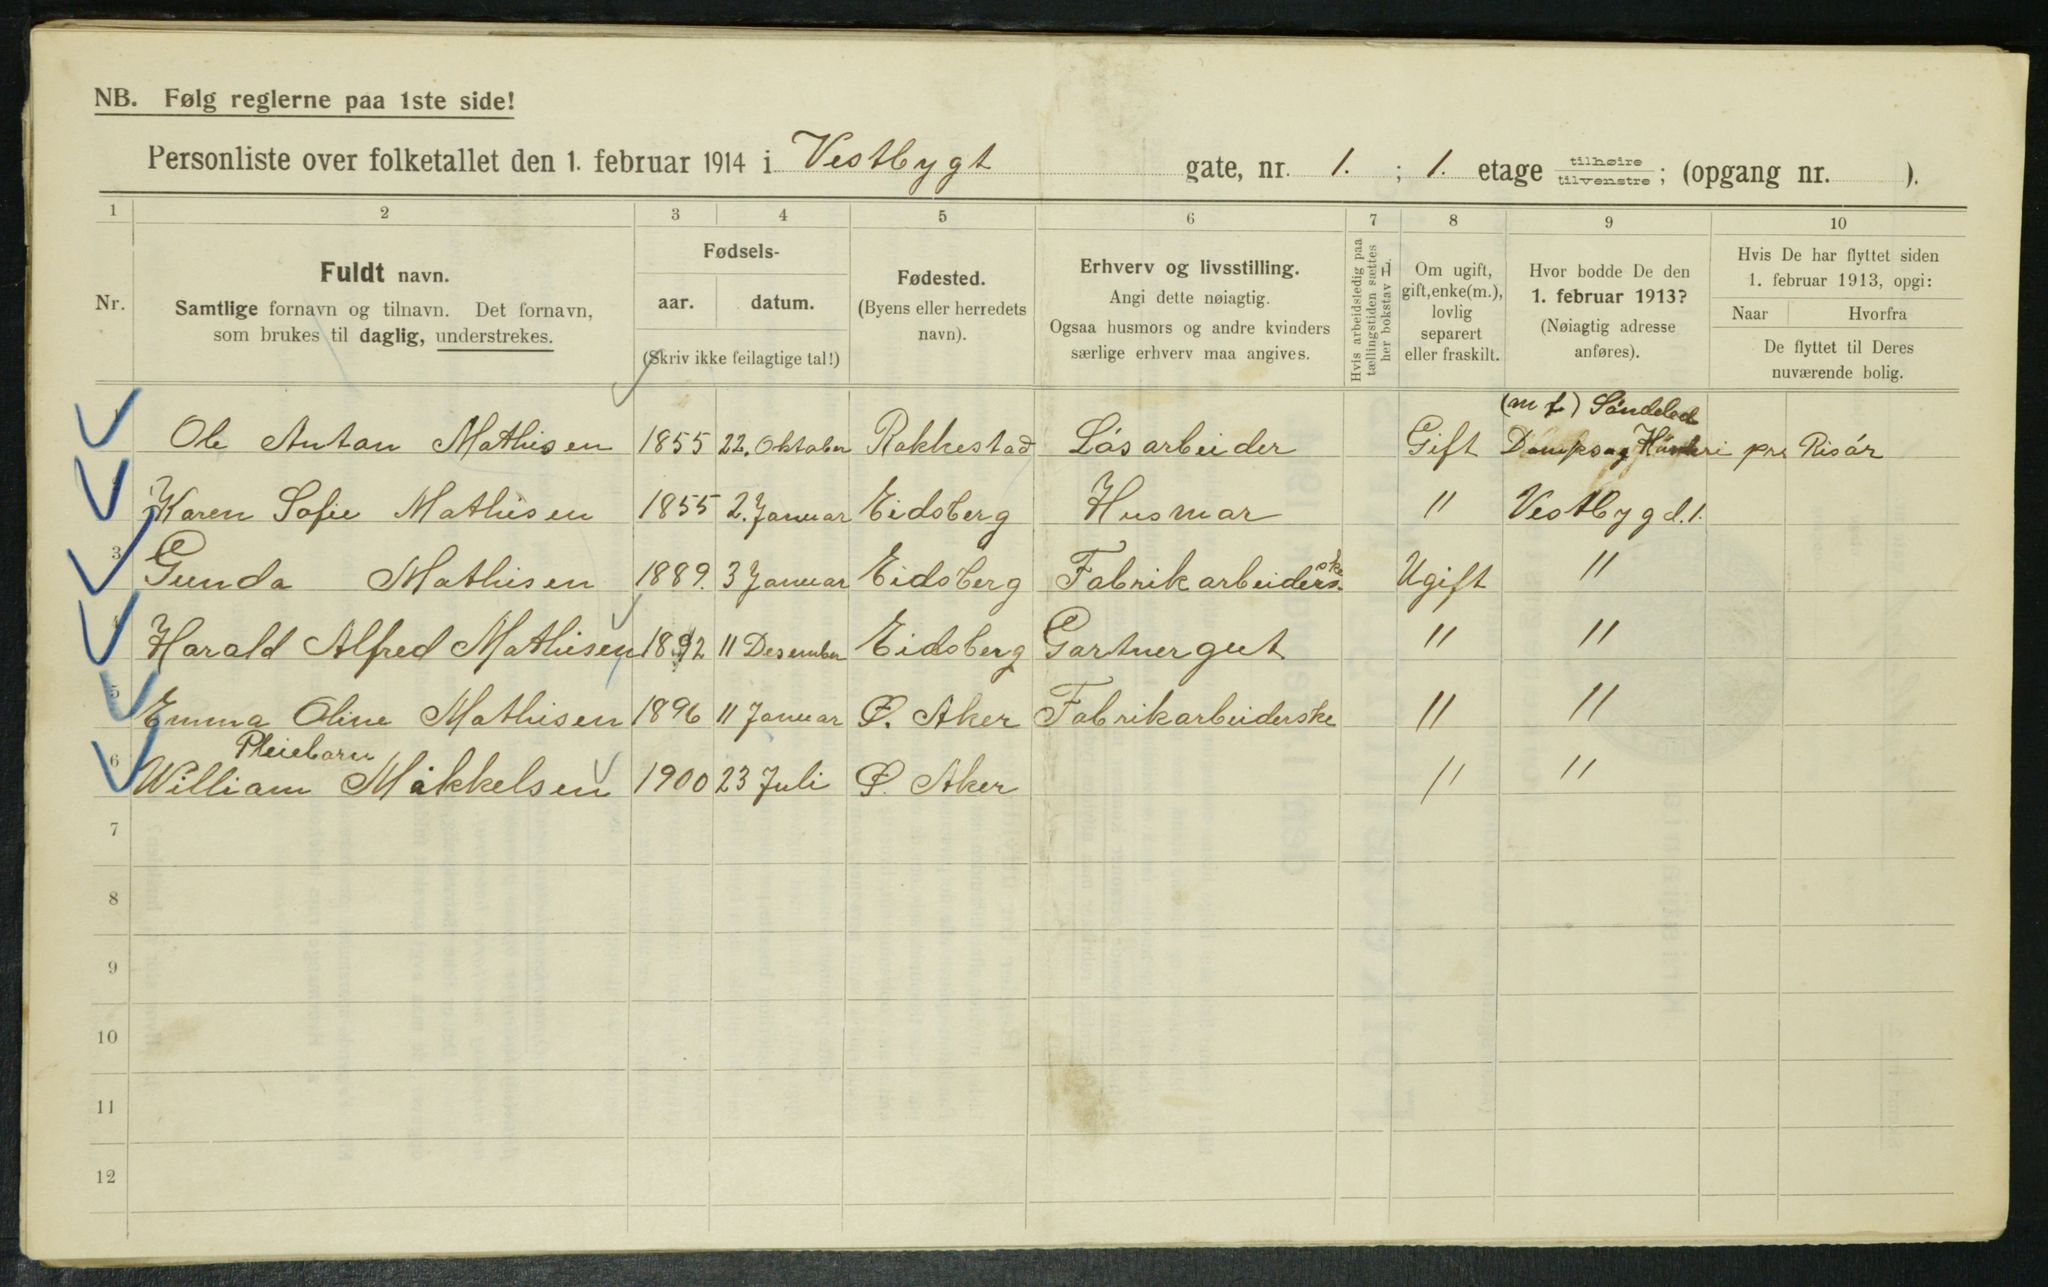 NB. Følg reglerne paa 1ste side!
Personliste over folketallet den 1. februar 1914 i Vestbygt gate, nr. 1. ; 1. etage tilhøire tilvenstre ; (opgang nr. ).
1 2 3 4 5 6 7 8 9 10
Nr.
Fuldt navn.
Samtlige fornavn og tilnavn. Det fornavn,
som brukes til daglig, understrekes.
Fødsels-
aar. datum.
(Skriv ikke feilagtige tal!)
Fødested.
(Byens eller herredets
navn).
Erhverv og livsstilling.
Angi dette nøiagtig.
Ogsaa husmors og andre kvinders
særlige erhverv maa angives.
Hvis arbeidsledig paa
tællingstiden sættes
her bokstav L.
Om ugift,
gift, enke(m.),
lovlig
separert
eller fraskilt.
Hvor bodde De den
1. februar 1913?
(Nøiagtig adresse
anføres).
Hvis De har flyttet siden
1. februar 1913, opgi:
Naar Hvorfra
De flyttet til Deres
nuværende bolig.
(m f) Søndeled
1 Ole Antan Mathisen 1855 22. Oktober Rakkestad Løsarbeider Gift Dampsag pr. Risør
2 Karen Sofie Mathisen 1855 2. Januar Eidsberg Husmor " Vestbygd. 1.
3 Gunda Mathisen 1889. 3 Januar Eidsberg Fabrikarbeiderske Ugift "
4 Harald Alfred Mathisen 1892 11 Desember Eidsberg Gartnergut " "
5 Emma Oline Mathisen 1896 11 Januar Ø. Aker Fabrikarbeiderske " "
Pleiebarn
6 William Mikkelsen 1900 23 Juli Ø. Aker " "
7
8
9
10
11
12